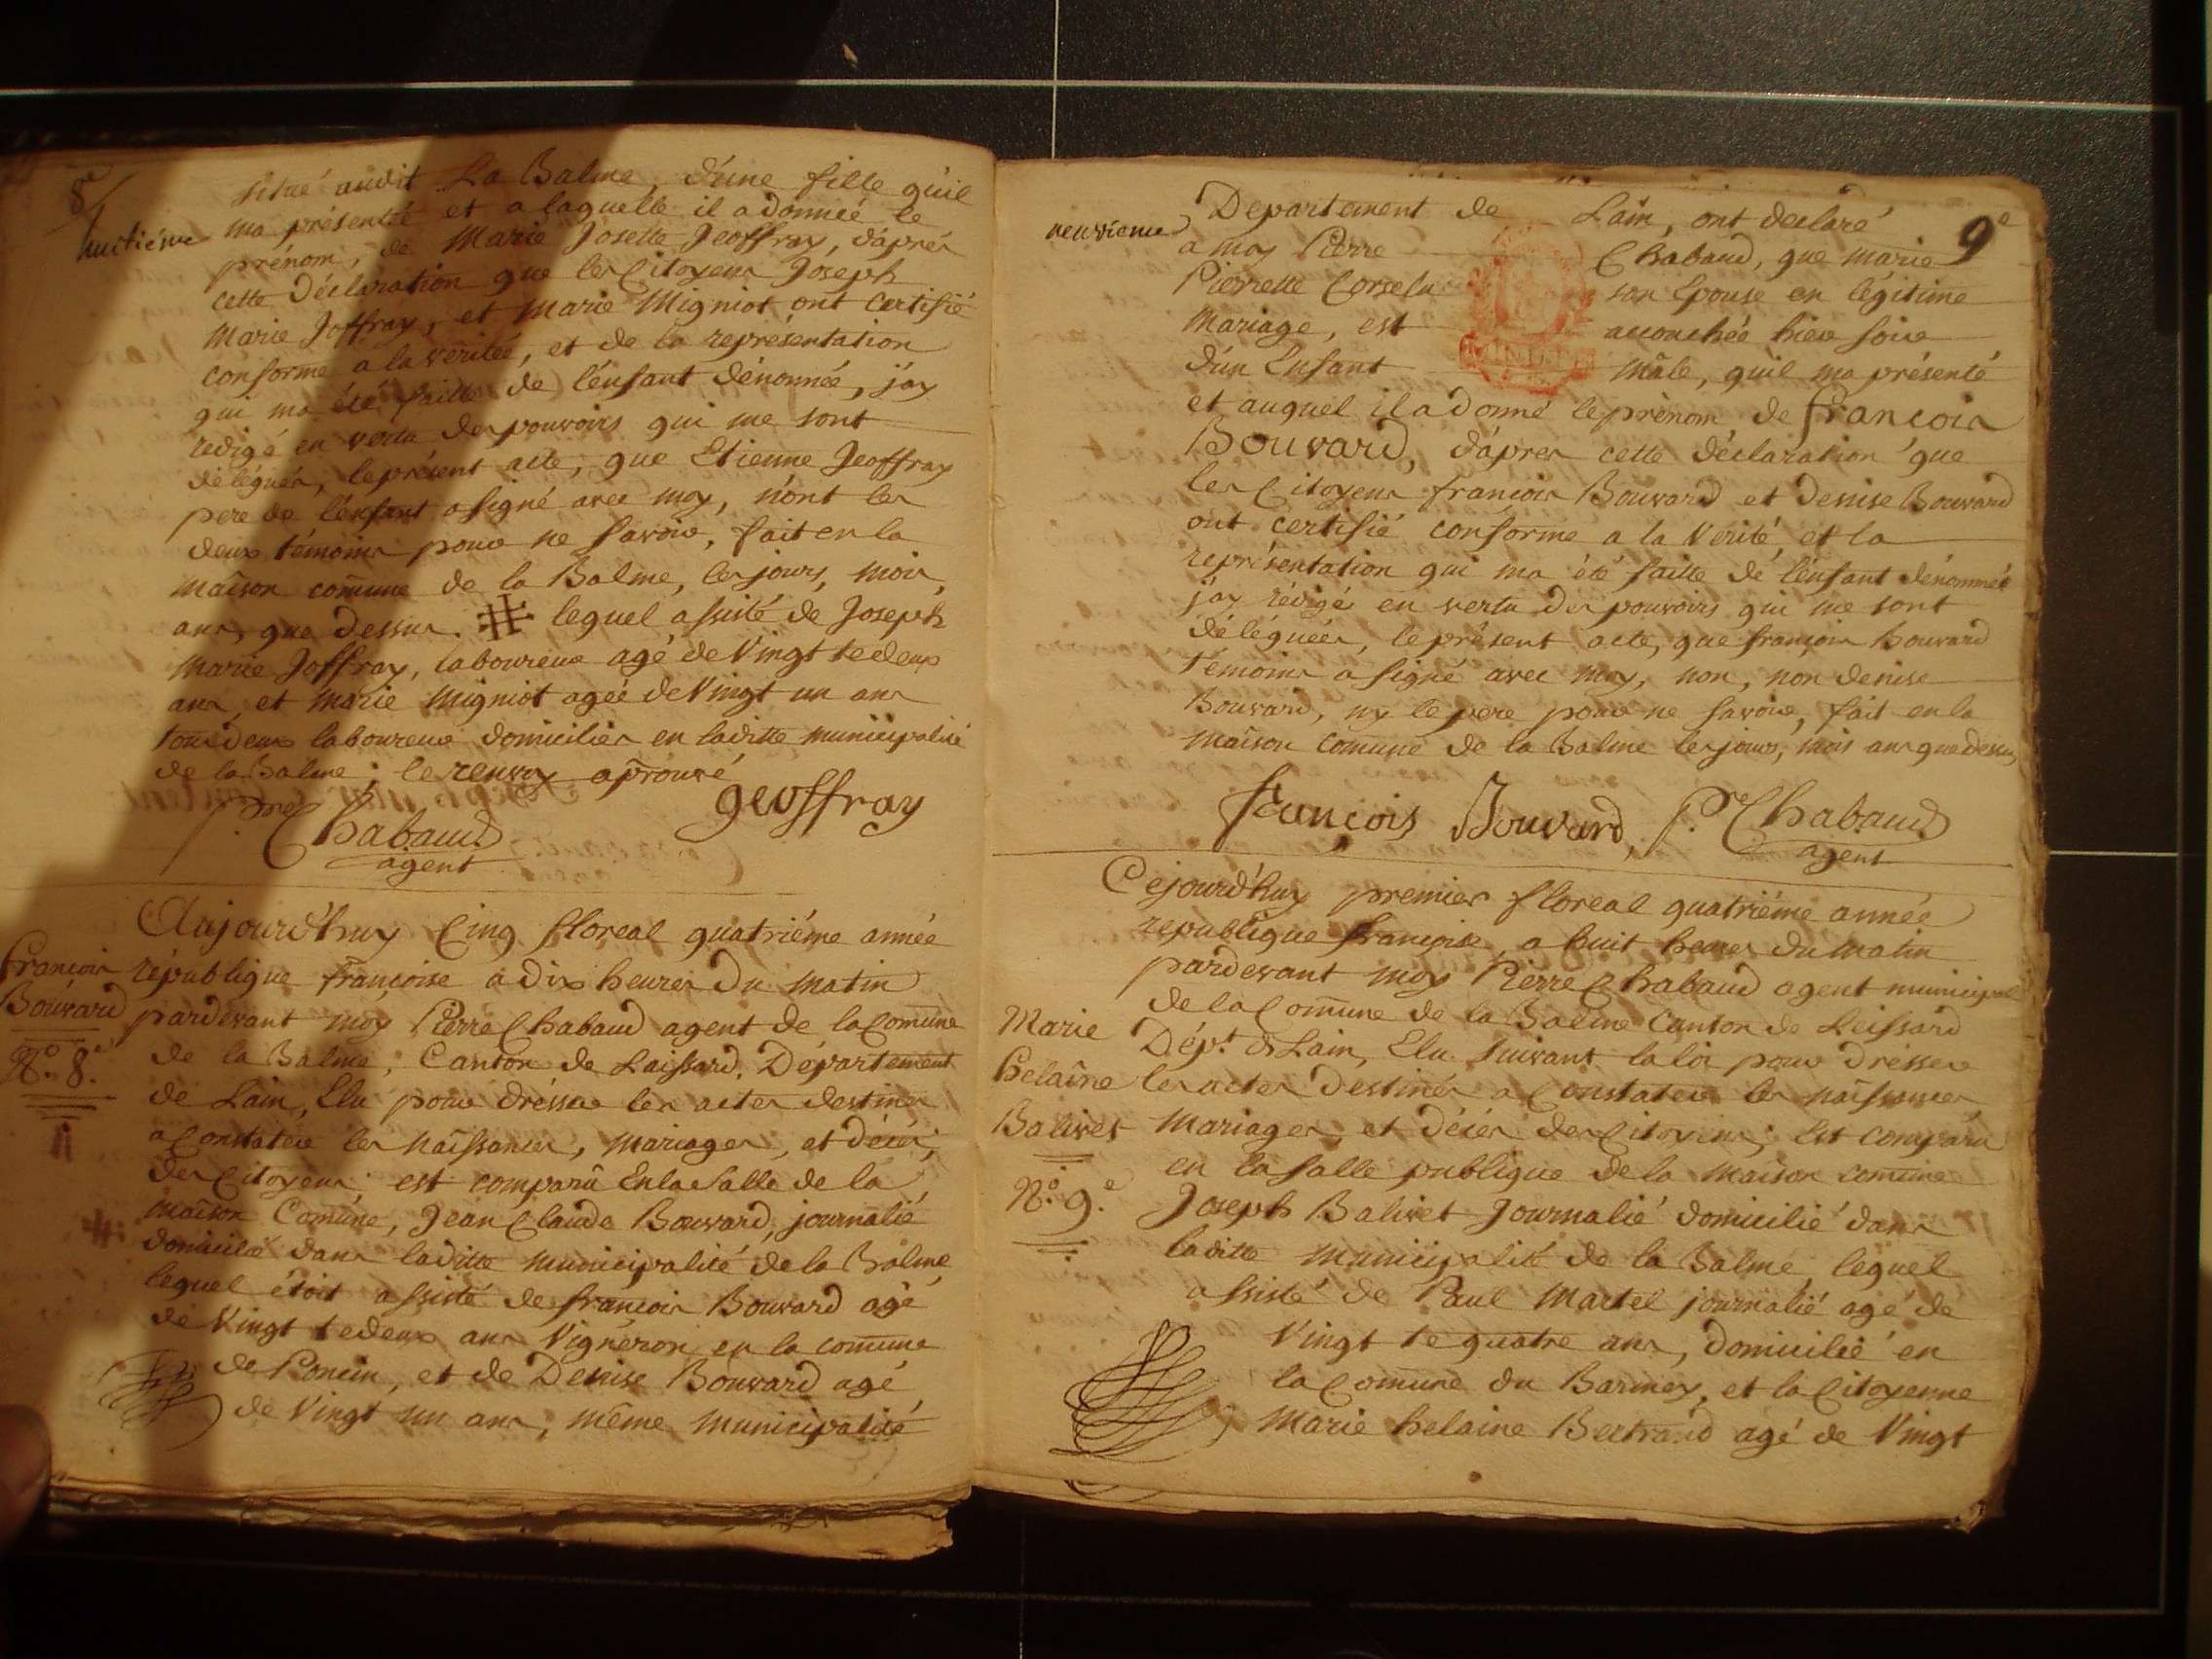 8e
huitiéme
situé audit La Balme, d'une fille qu'il
ma présentée et a laquelle il a donnée le
prénom, de Marie Josette Jeoffray, d'aprés
cette déclaration que les Citoyens Jóseph
Marie Joffray, et Marie Migniot ont certifié
conforme a la véritée, et de la représentation
qui ma été faitte de l'enfant dénonnée, j'ay
redigé en vertu des pouvoirs qui me sont
délégués, le présent acte, que Etienne Jeoffray
pere de l'enfant a signé avec moy, n'ont les
deux témoins pour ne savoir, fait en la
maison comune de la Balme, les jours, mois,
ans, que dessus. # lequel assisté de Joseph
Marie Joffray, laboureur agé de Vingt te deux
ans, et Marie Migniot agée de Vingt un ans
tous deux laboureur domiciliés en laditte municipalité
de la Balme; le renvoy aprouvé
geoffray
Pre Chabaud
agent
Aujourd'huy Cinq floreal quatriéme année
républigue françoise a dix heures du matin
pardevant moy Pierre Chabaud agent de la Comune
de la Balme, Canton de Laissard, Département
de Lain, Elu pour drésser les actes destinés
a Constater les naissances, mariages, et décés,
des Citoyens, est comparû En la Salle de la
maison Comune, Jean Claude Bouvard, journalié
domicilié dans laditte municipalité de la Balme
lequel étoit assisté de françois Bouvard agé
de Vingt te deux ans Vigneron en la comune
de Poncin, et de Denise Bouvard agé
de Vingt un ans, même municipalité
françois
Bouvard
No. 8.e
neuvieme
9e
Departement de Lain, ont declaré
a moy Pierre Chabaud, que marie
Pierrette Corselu son Epouse en légitime
Mariage, est accouchée hier soir
d'un Enfant mâle, qu'il ma présenté
et auquel il a donné le prénom de françois
Bouvard, d'apres cette déclaration que
les Citoyens françois Bouvard et Denise Bouvard
ont certifié conforme a la Verité, et la
représentation qui ma été faitte de l'enfant dénommée
j'ay rédigé en vertu des pouvoirs qui me sont
déléguées, le présent acte, que françois Bouvard
témoins a signé avec moy, non, non denise
Bouvard, ny le pere pour ne savoir, fait en la
maison comune de la Balme les jours, mois ans que dessus
francois Bouvard, Pre Chabaud
agent
Cejourd'huy premier floreal quatriéme année
republique françoise, a huit heures du matin
pardevant moy Pierre Chabaud agent municipal
de la Comune de la Balme Canton de Leissard
Dépt. de Lain, Elu suivant la loi pour drésser
les actes destinés a Constater les naissances,
Mariages, et décés des Citoyens, Est comparu
en la salle publique de la maison comune
Joseph Balivet Journalié domicilié dans
laditte municipalité de la Balme, lequel
assisté de Paul Martel journalié agé de
Vingt te quatre ans, domicilié en
la Comune du Barmey, et la Citoyenne
Marie helaine Bertrand agé de Vingt
Marie
helaîne
Balivet
No. 9.e